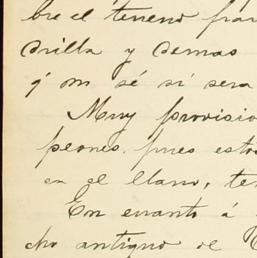 bre el terreno par
drilla y demas
q' no sé si sera
Muy provisio
peones. pues esto
en el llano, te
En cuanto á
cho antiguo de